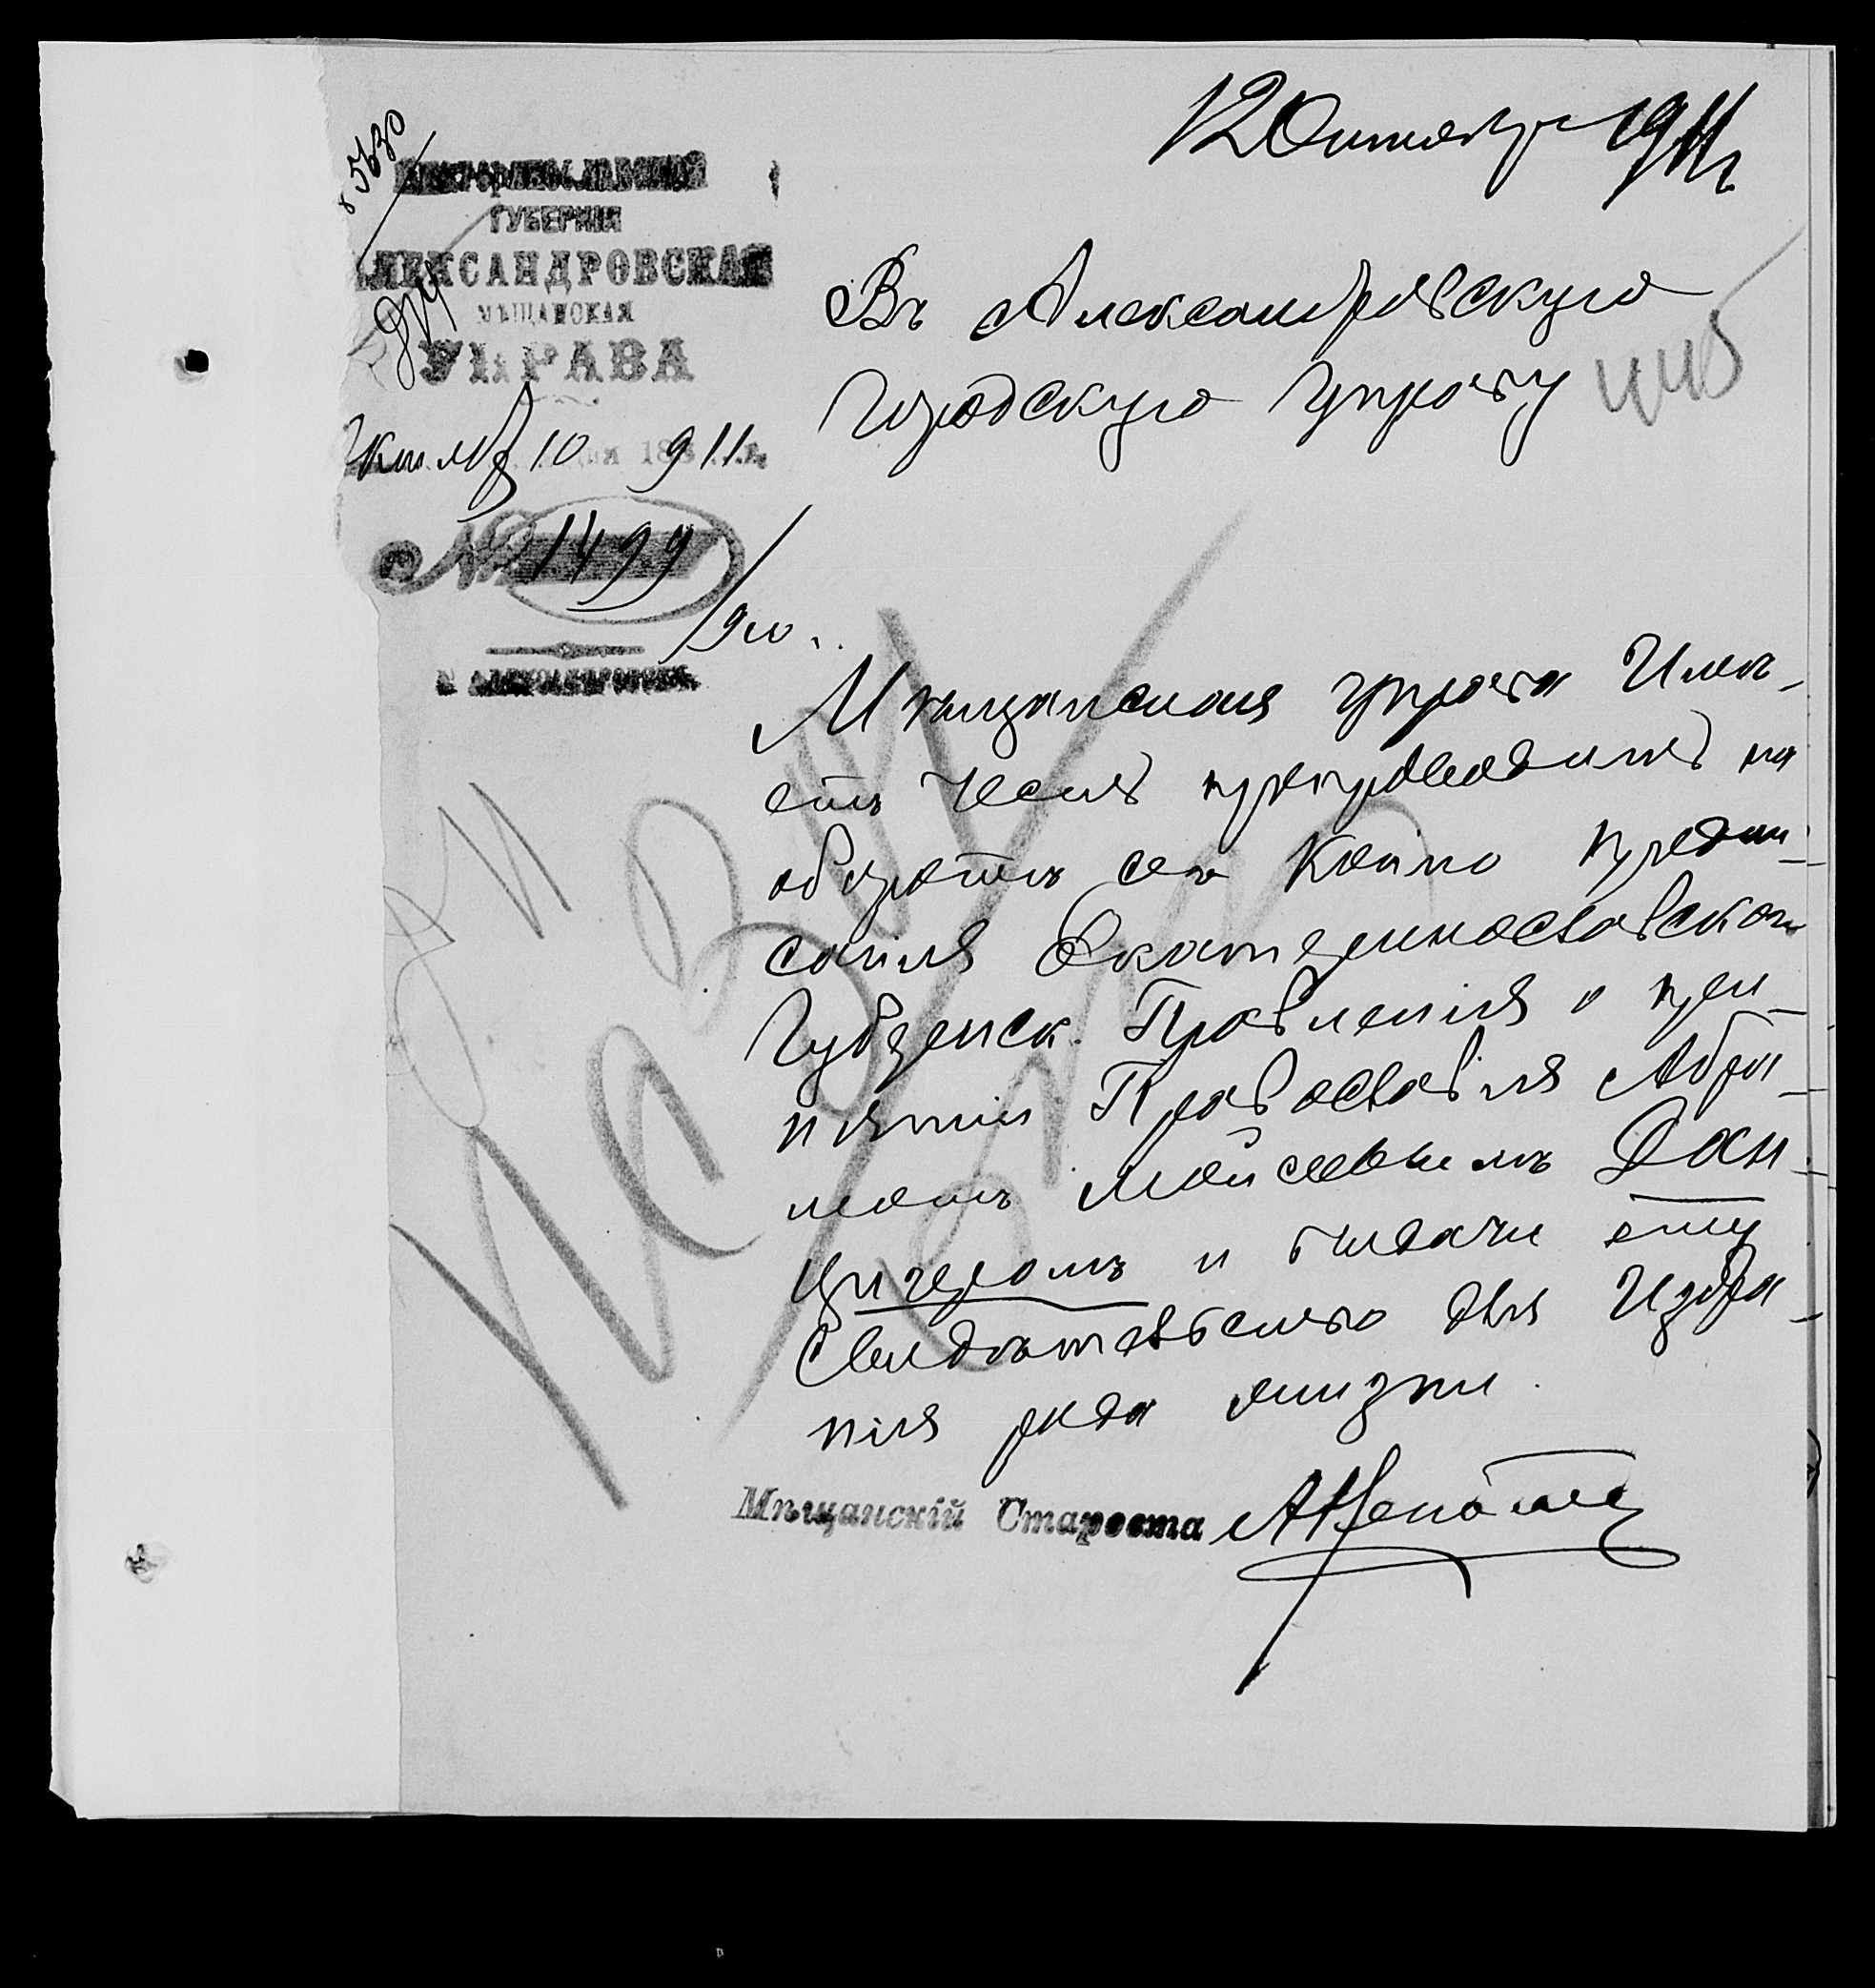 12 Октября 1911 г
8530
ЕКАТЕРИНОСЛАВСКАЯ
ГУБЕРНІЯ
АЛЕКСАНДРОВСКАЯ
МѢЩАНСКАЯ
УПРАВА
Октября 10 911 г.
№ 1499
Г. АЛЕКСАНДРОВСКЪ.
Въ Александровскую
Городскую Управу
Мѣщанская управа Имѣ-
етъ честь препроводить на
оборотѣ сего копію предпи-
санія Екатеринославского
Губернск. Правленія о при-
нятіи Православія Абра-
момъ Мойсеевымъ Дан-
цигеромъ и выдачи ему
свидѣтельства для Избра-
нія рода жизни.
Мѣщанскій Староста